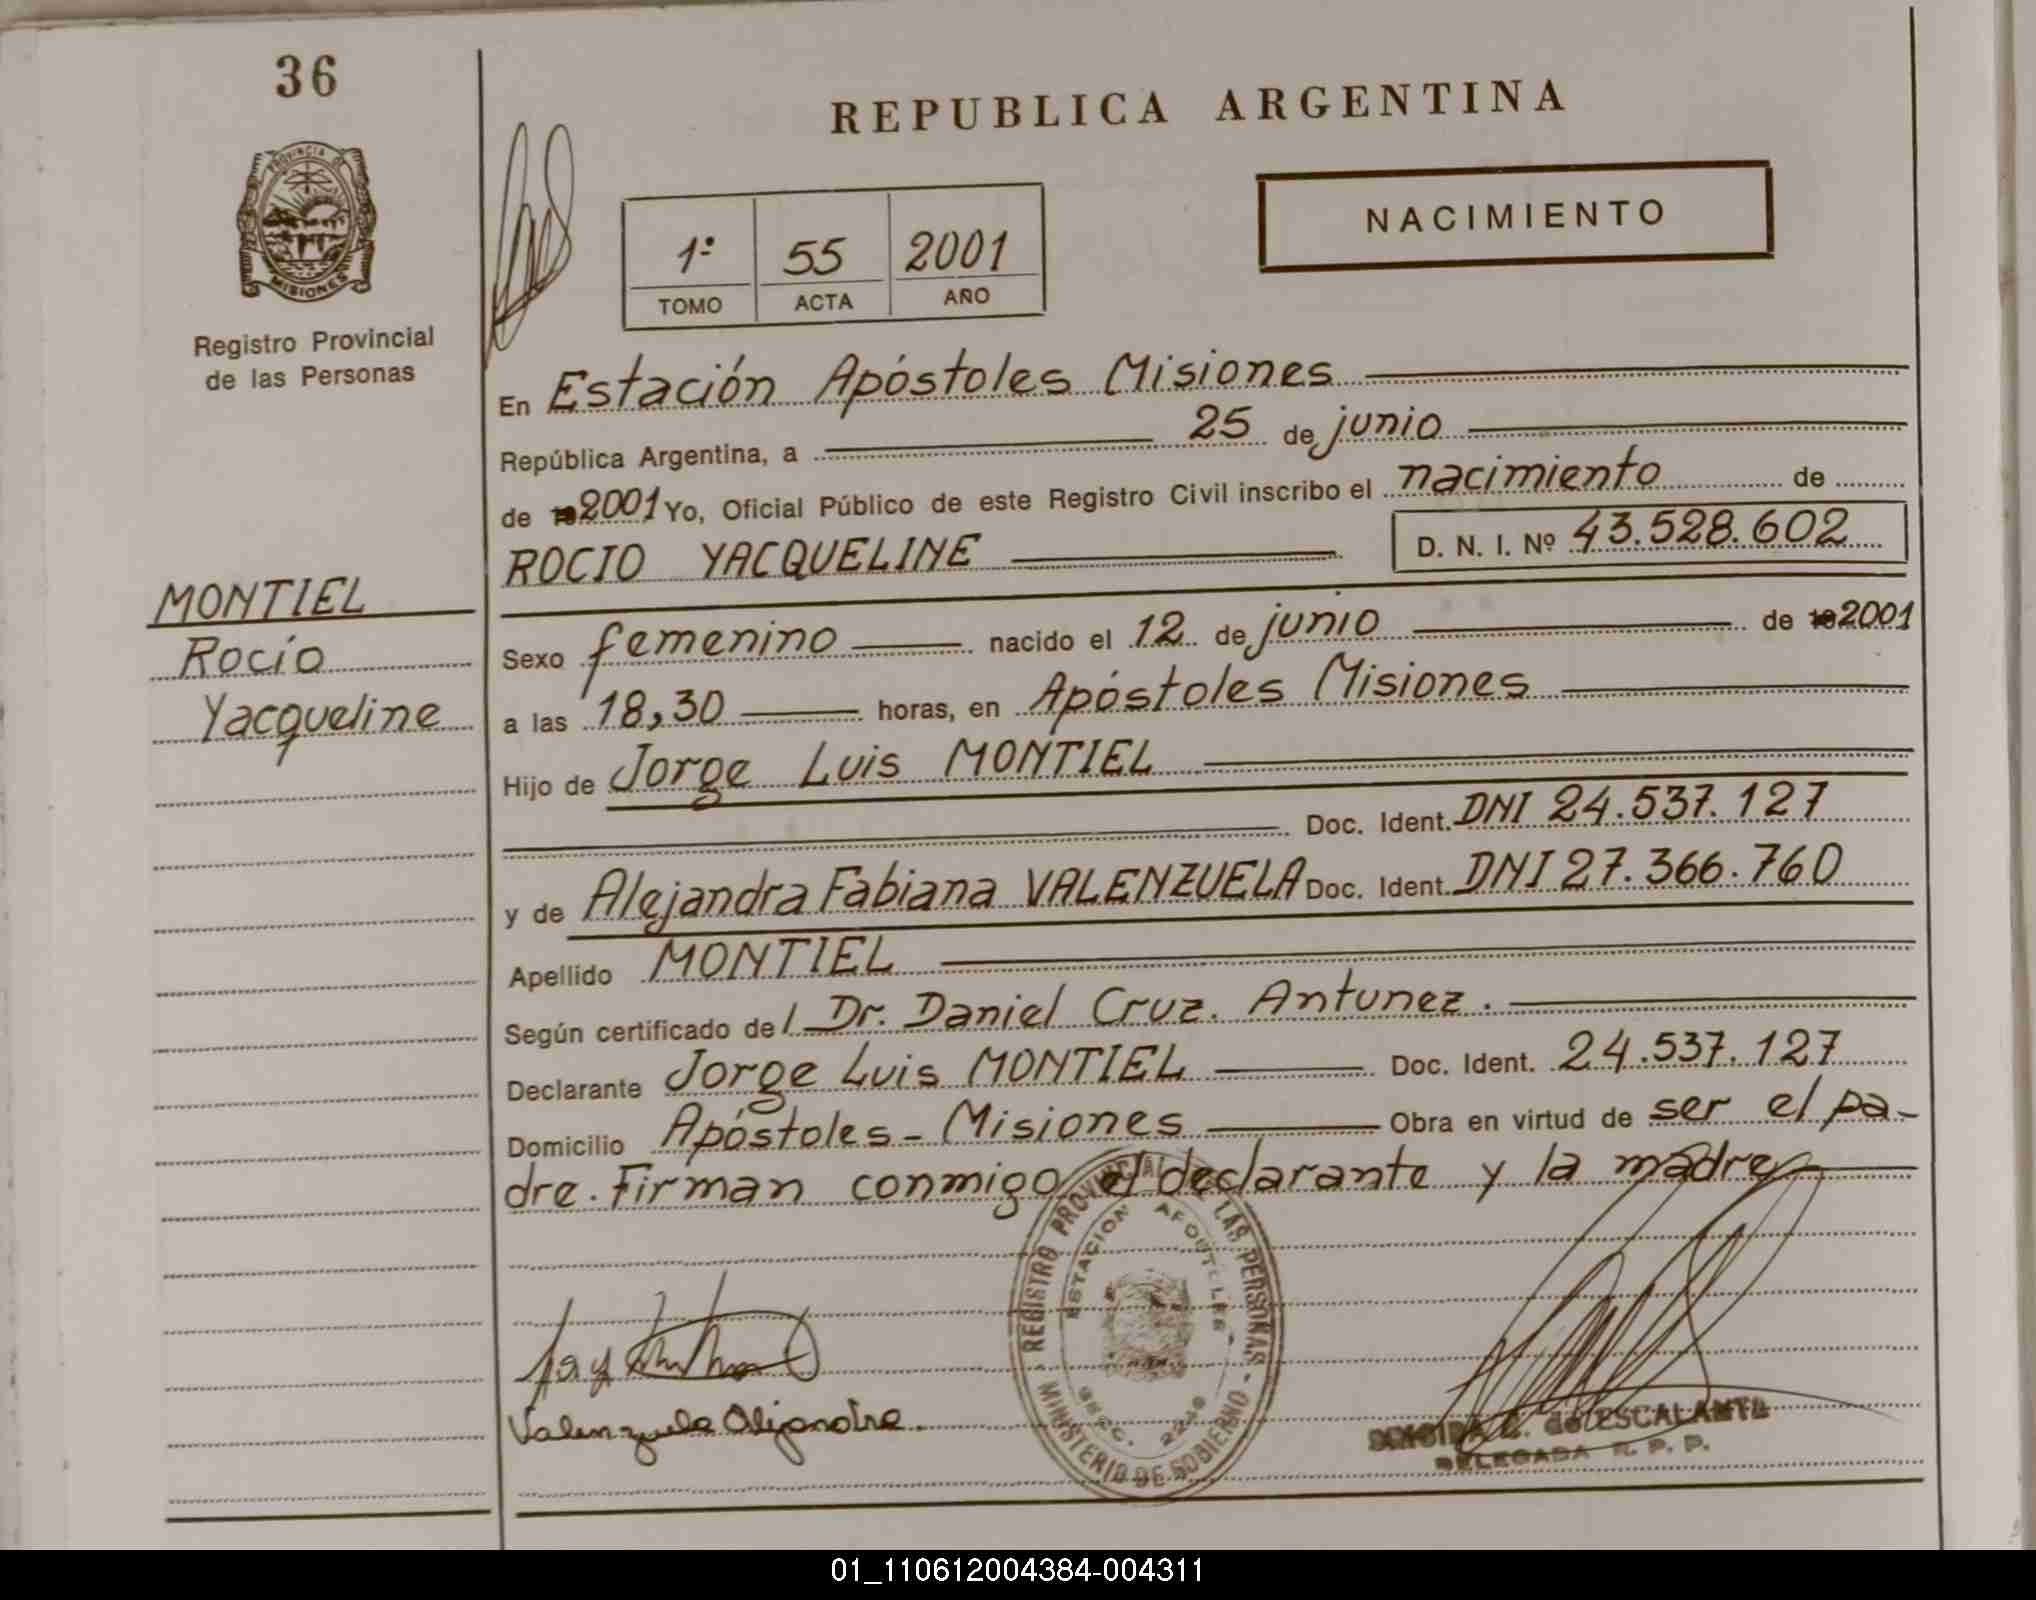 36
PROVINCIA DE
MISIONES
Registro Provincial
de las Personas
MONTIEL
Rocío
Yacqueline
REPUBLICA ARGENTINA
NACIMIENTO
1º 55 2001
TOMO ACTA AÑO
En Estación Apóstoles Misiones
República Argentina, a 25 de junio
de 19 2001 Yo, Oficial Público de este Registro Civil inscribo el nacimiento de
ROCIO YACQUELINE D. N. I. Nº 43.528.602
Sexo femenino nacido el 12 de junio de 19 2001
a las 18,30 horas, en Apóstoles Misiones
Hijo de Jorge Luis MONTIEL
Doc. Ident. DNI 24.537.127
y de Alejandra Fabiana VALENZUELA Doc. Ident. DNI 27.366.760
Apellido MONTIEL
Según certificado del Dr. Daniel Cruz. Antunez.
Declarante Jorge Luis MONTIEL Doc. Ident. 24.537.127
Domicilio Apóstoles - Misiones Obra en virtud de ser el pa-
dre. Firman conmigo el declarante y la madre
REGISTRO PROVINCIAL DE LAS PERSONAS
ESTACION APOSTOLES
MINISTERIO DE GOBIERNO
Valenzuela Alejandra.
de ESCALANTE
DELEGADA R. P. P.
01_110612004384-004311